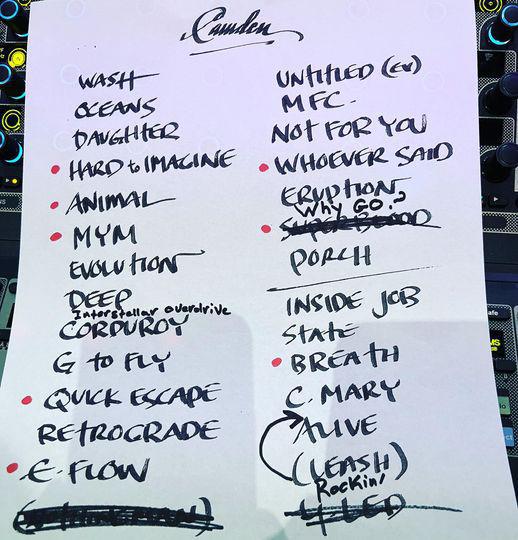 Camden
WASH
OCEANS
DAUGHTER
HARD to IMAGINE
ANIMAL
MYM
EVOLUTION
DEEP
Interstellar overdrive
CORDUROY
G TO FLY
QUICK ESCAPE
RETROGRADE
E. FLOW
UNTITLED (EV)
MFC.
NOT FOR YOU
WHOEVER SAID
ERUPTION
WHY GO?
SUPERBLOOD
PORCH
INSIDE JOB
STATE
BREATH
C. MARY
ALIVE
(LEASH)
Rockin'
YLED